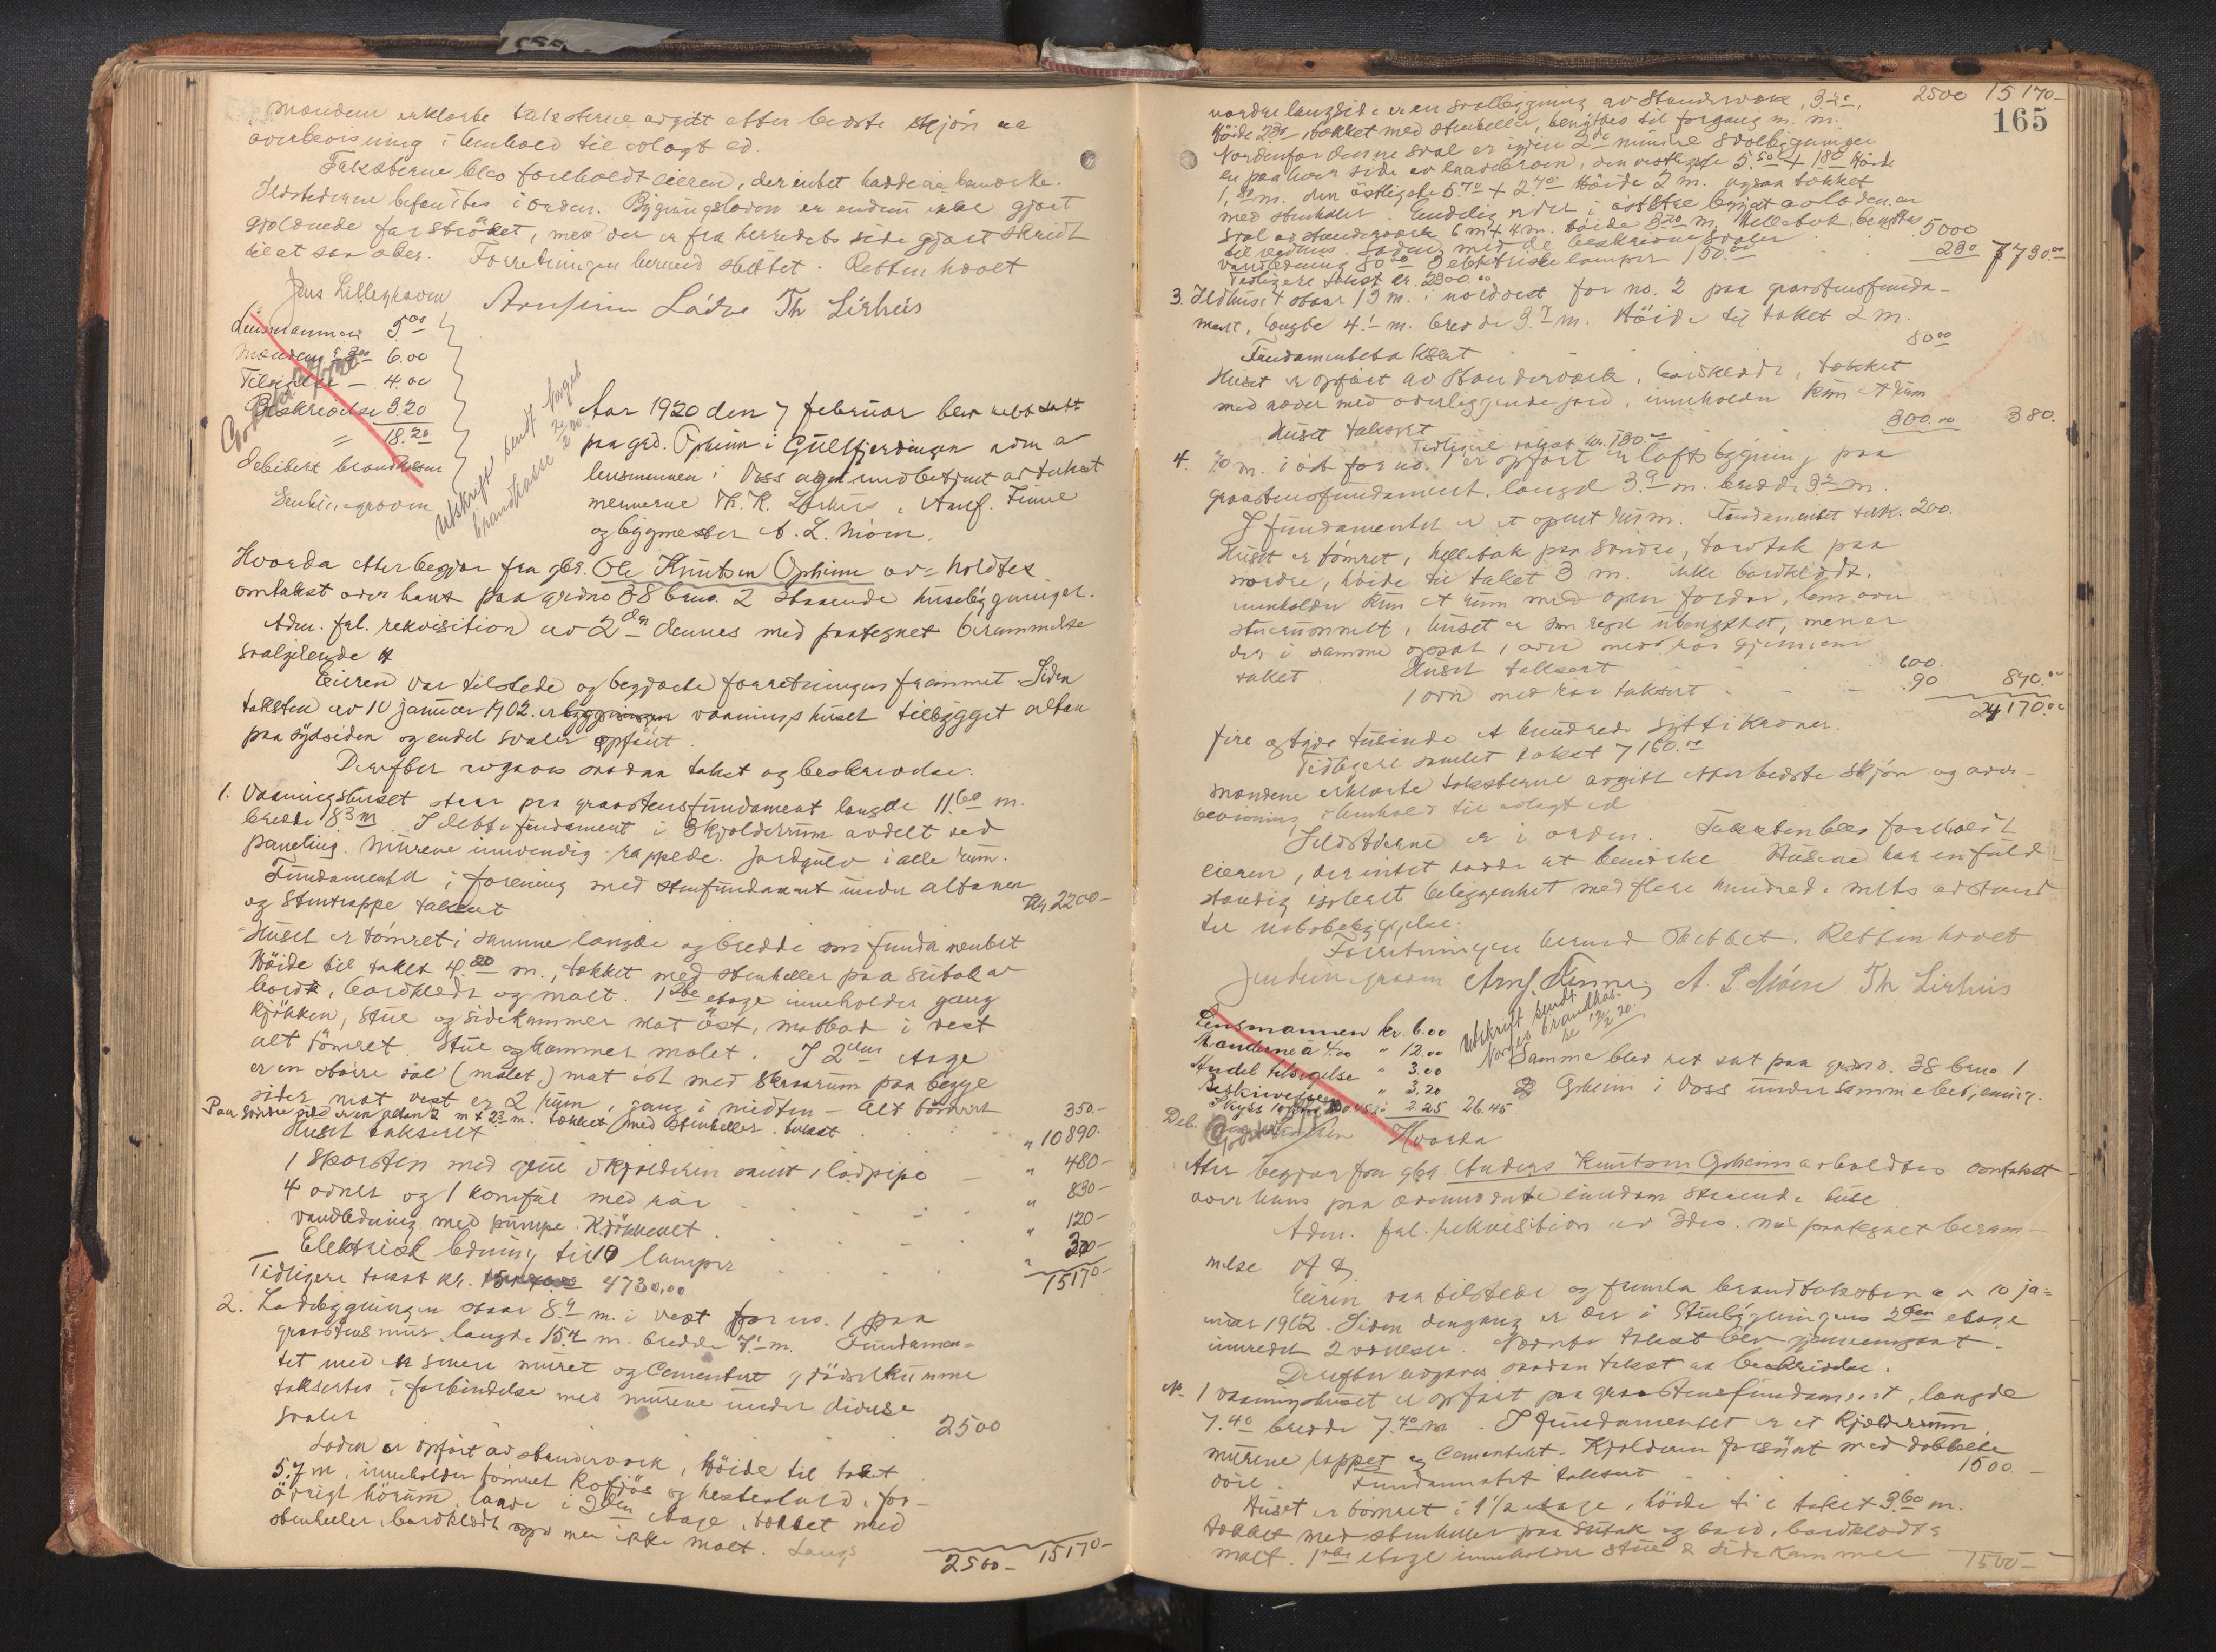 Mændene erklærte taksterne avgit efter bedste skjön og
overbevisning i henhold til avlagt ed.
Taksterne blev foreholdt eieren, der intet hadde at bemerke.
Ildstederne befandtes i orden. Bygningsloven er endnu ikke gjort
gjældende for ströket, men der er fra herredets side gjort skridt
til at saa sker. Forretningen hermed sluttet. Retten hævet
Arnfinn Lödve Th Lirhus
Lensmannen 5.00
Mændene à 3.00 6.00
Tilsigelse — 4.00
Beskrivelse 3.20
18.20
Utskrift sendt Norges
brandkasse
Aar 1920 den 7 februar blev rett satt
paa grd. Opheim i Gullfjerdingen adm av
lensmannen i Voss med betjent av takst
mennerne Th. K. Lirhus, Arnf. Finne
og bygmester A. L. Möen.
Hvorda efter begjær fra gbr. Ole Knutsen Opheim av= holdtes
omtakst over hans paa grdno 38 brno. 2 staaende husebygninger.
Adm. frl. rekvisition av 2den dennes med paategnet berammelse
saalydende A
Eieren var tilstede og begjærte forretningen fremmet. Siden
taksten av 10 januar 1902. er vaaningshuset tilbygget altan
paa sydsiden og endel svaler opfört.
Derefter avgaves saadan takst og beskrivelse.
1. Vaaningshuset staar paa graastensfundament længde 11.60 m.
bredde 8 3 m I dette fundament i 3 kjælderrum avdelt ved
paneling. Murene indvendig rappede. Jordgulv i alle rum.
Fundamentet i forening med stenfundament under altanen
og stentrappe taksert Kr 2200-
Huset er tömret i samme længde og bredde som fundamentet
Höide til taket 4.80 m., tækket med stenheller paa sutak av
bord, bordklædt og malt. 1ste etage inneholder gang
kjökken, stue og sidekammer mot öst, matbod i vest
alt tömret. Stue og kammer malet. I 2den etage
er en större sal (malet) mot öst med skraarum paa begge
sider mot vest er 2 rum, gang i midten - Alt
Paa söndre side er en altan 2 m + 2 3 m. tækket med stenheller. takst 350.-
Huset takseret " 10890.-
1 skorsten med grue i kjælderen samt 1 lödpipe " 480-
4 ovner og 1 komfur med rör " 830-
vandledning med pumpe i Kjökkenet " 120-
Elektrisk ledning til 10 lamper " 300-
Tidligere takst kr. 4730,00 15170-
2. Ladebygningen staar 8.4 m. i vest for no. 1 paa
graastens mur, længde 15.4 m. bredde 7.1 m. Fundamen=
tet med en smere muret og Cementert gjödselkumme
takseres i forbindelse med murene under diverse
svaler 2500
Laden er opfört av stenderverk, höide til taket
5.7 m, inneholder tömret kofjös og hestestald i for-
övrigt hörum, laave i 2den etage, tækket med
stenheller, bordklædt men ikke malt. Langs
2500- 15170-
2500 15170-
165
nordre langside er en svalbygning av Stenderverk,
Höide 2.30, tækket med stenheller, benyttes til forgang m. m.
Nordenfor denne sval er igjen 2de mindre svalbygninger
en paa hver side av laavebroen, den vestligste 5.50 + 1.80 Höide
1.80 m. den östligste 5.70 + 2.70 Höide 2 m. ogsaa tækket
med stenheller. Endelig er der i östre langside av laden en
sval av stenderverk 6 m + 4 m. höide 3.20 m. Helletak, benyttes
til vedhus. Laden med de beskrevne svaler 5000
vandledning 80.00 3 elektriske lamper 150.00 230 7730.00
Tidligere takst kr. 2300.00
3. Ildhuset staar 13 m. i nordvest for no. 2 paa graastensfunda-
ment, længde 4.1 m. bredde 3.7 m. Höide til taket 2 m.
Fundamentet taksert 80.00
Huset er opfört av stenderverk, bordklædt, tækket
med næver med overliggende jord, inneholder kun et rum
Huset taksert 300.00 380.
Tidligere takst kr. 180.00
4. 70 m. i öst for no. 1 er opfört en loftsbygning paa
graastensfundament, længde 3.9 m. bredde 3.2 m.
I fundamentet er et opent rum. Fundamentet taks. 200.
Huset er tömret, helletak paa söndre, torvtak paa
nordre, höide til taket 3 m. ikke bordklædt.
inneholder kun et rum med open fordør, lem over
stuerummet, huset er som regel ubenyttet, men er
der i samme opsat 1 ovn med rör gjennem
taket. Huset taksert 600.
1 ovn med rör taksert 90 890.00
24170.00
fire og tyve tusinde et hundrede sytti kroner.
Tidligere samlet takst 7160.00
Mændene erklærte taksterne avgit efter bedste skjön og over-
bevisning i henhold til avlagt ed
Ildstederne er i orden. Taksten blev foreholdt
eieren, der intet hadde at bemerke Husene har en fuld-
stændig isoleret beliggenhet med flere hundrede meters avstand
til nabobebyggelse.
Forretningen hermed sluttet. Retten hævet
Arnf. Finne A. L. Möen Th Lirhus
Lensmannen kr. 6.00
Mændene à 4.00 " 12.00
Andel tilsigelse " 3.00
Beskrivelsen " 3.20
Skyss 2.25 26.45
Utskrift sendt
Norges brandkas-
se 12/2 20.
Samme blev ret sat paa grdno. 38 brno 1
Opheim i Voss under samme betjening.
Hvorda
efter begjær fra gbr. Anders Knutsen Opheim avholdtes omtakst
over hans paa ovennævnte eiendom staaende huse
Adm. frl. rekvisition av 3des. med paategnet beram-
melse A
Eieren var tilstede og fremla brandtaksten av 10 ja=
nuar 1912. Siden dengang er der i Stuebygningens 2den etage
innredet 2 værelser. Nævnte takst blev gjennemgaat.
Derefter avgaves saadan takst og beskrivelse.
No. 1 Vaaningshuset er opfört paa graastensfundament, længde
7.40 bredde 7.40 m. I fundamentet er et Kjælderrum,
murene rappet og Cementert. Kjælderen forsynt med dobbelte
döre. Fundamentet taksert 1500-
Huset er tömret i 1 1/2 etage, höide til taket 3.60 m.
tækket med stenheller paa sutak og bord, bordklædt &
malt. 1ste etage inneholder stue & sidekammer 1500-